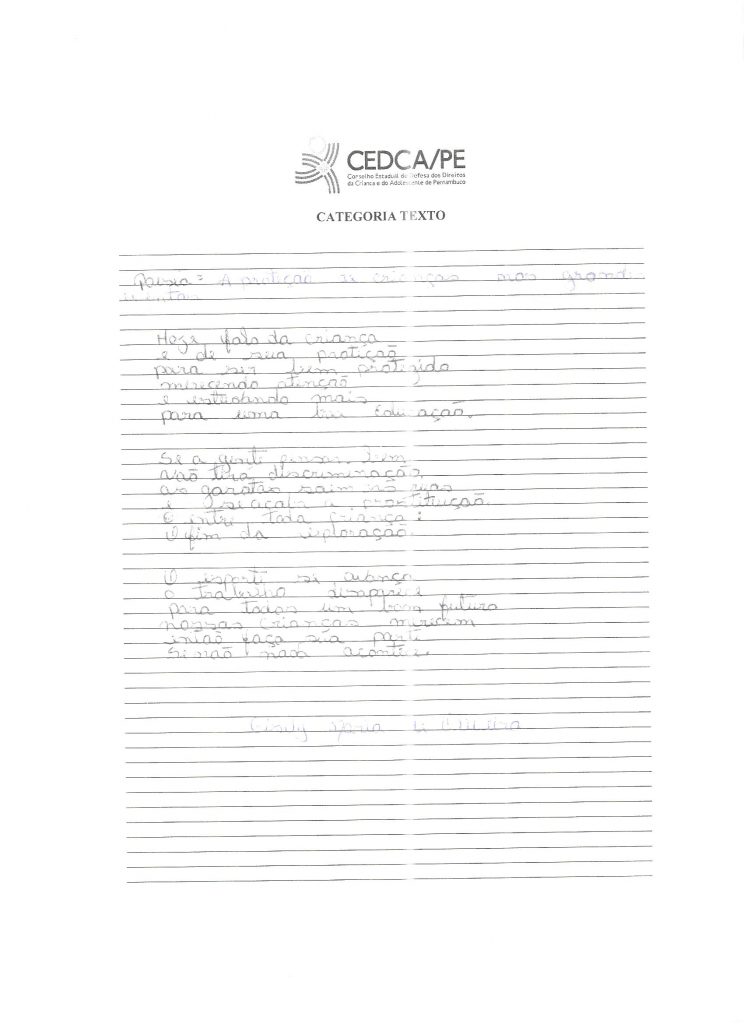 CEDCA/PE
Conselho Estadual de Defesa dos Direitos
da Criança e do Adolescente de Pernambuco
CATEGORIA TEXTO
Poesia: A proteção de crianças nos grandes
eventos
Hoje falo da criança
e de sua proteção
para ser bem protegido
merecendo atenção
e estudando mais
para uma boa Educação.
Se a gente pensar bem
Não terá discriminação,
as garotas saim nas ruas
e a prostituição.
E entre toda criança:
O fim da exploração.
O esporte se avança
o trabalho desaparece
para todos um bom futuro
nossas crianças merecem
então faça sua parte
Se não nada acontece.